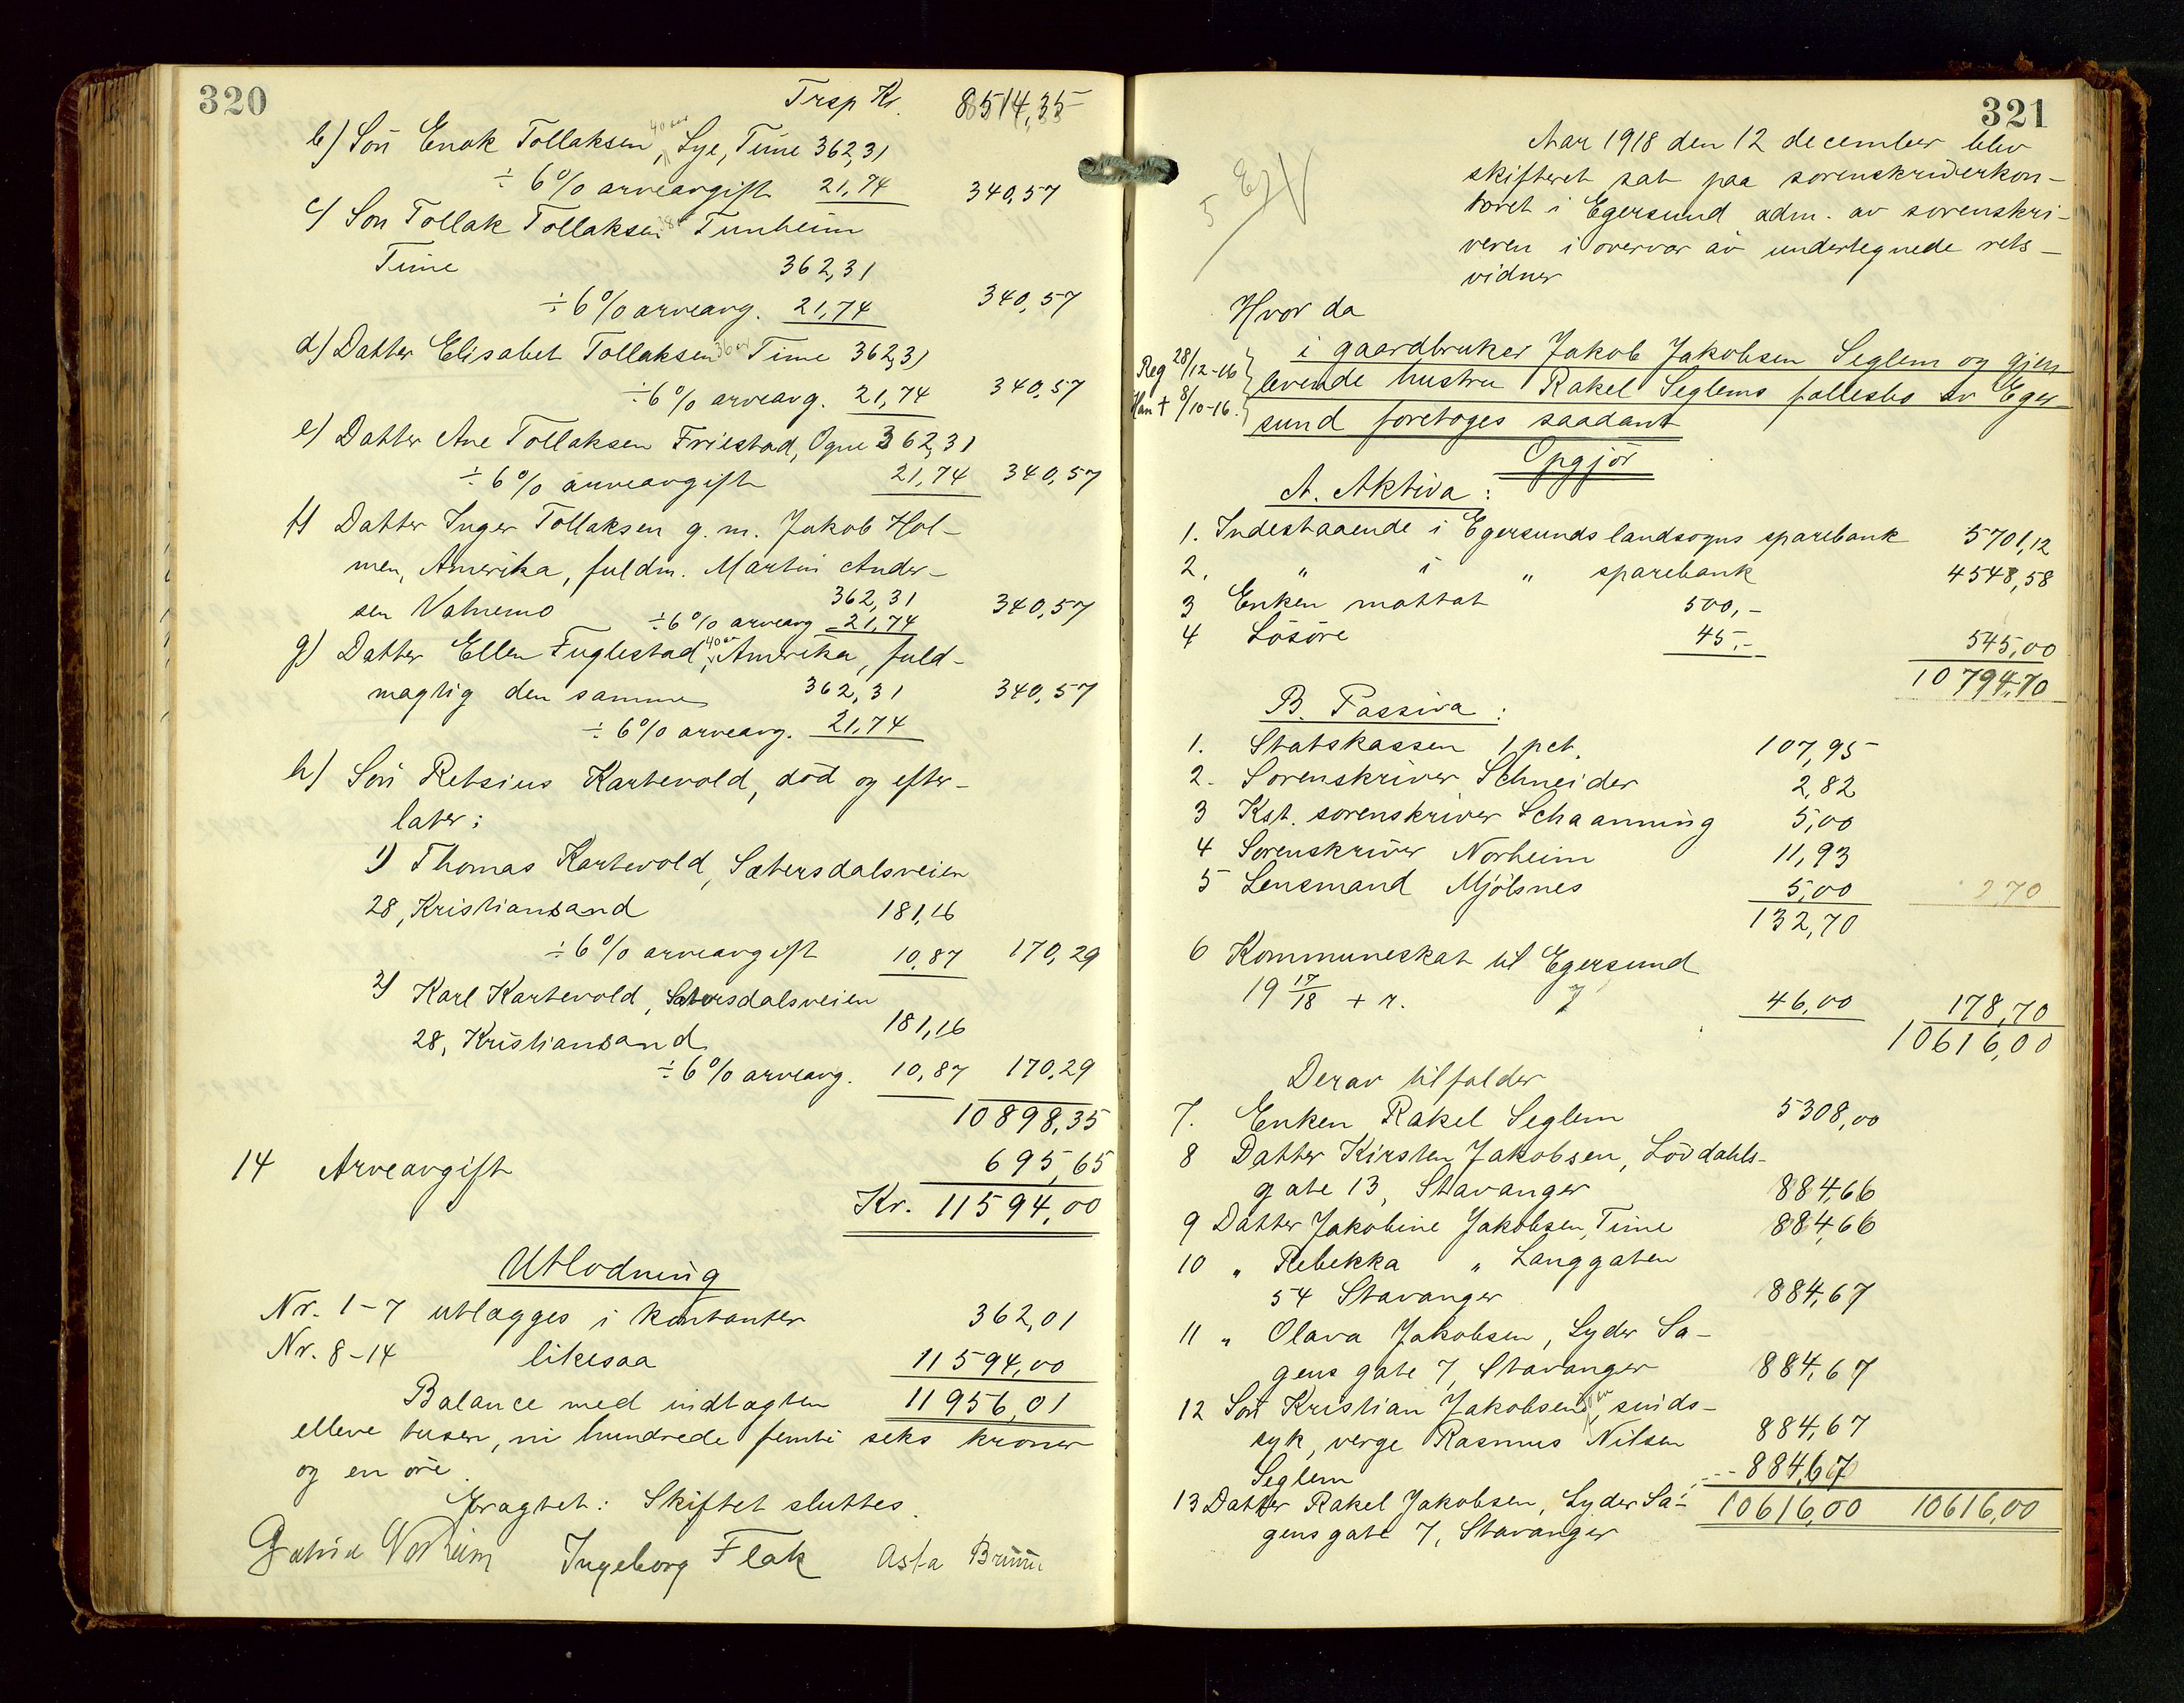 320
Trsp Kr. 8514,35
b) Søn Enok Tollaksen, 40 aar Lye, Time 362,31
÷ 6% arveavgift 21,74 340,57
c) Søn Tollak Tollaksen Tunheim
Time 362,31
÷ 6% arveavg. 21,74 340,57
d) Datter Elisabet Tollaksen 36 aar Time 362,31
÷ 6% arveavg. 21,74 340,57
e) Datter Ane Tollaksen Friestad, Ogne 362,31
÷ 6% arveavgift 21,74 340,57
f) Datter Inger Tollaksen g. m. Jakob Hol-
men, Amerika, fuldm. Martin Ander-
sen Vatnemo 362,31
÷ 6% arveavg 21,74 340,57
g) Datter Ellen Fuglestad, 40 aar Amerika, fuld-
mægtig den samme 362,31 340,57
÷ 6% arveavg. 21,74
h) Søn Retsius Kartevold, død og efter-
later:
1) Thomas Kartevold, Sætersdalsveien
28, Kristiansand 181,16
÷ 6% arveavgift 10,87 170,29
2) Karl Kartevold, Sætersdalsveien
28, Kristiansand 181,16
÷ 6% arveavg. 10,87 170,29
10898,35
14 Arveavgift 695,65
Kr. 11594,00
Utlodning
Nr. 1-7 utlægges i kontanter 362,01
Nr. 8-14 likesaa 11594,00
Balance med indtægten 11956,01
elleve tusen, ni hundrede femti seks kroner
og en øre.
Eragtet: Skiftet sluttes.
Norheim Ingeborg Flak Asta
321
Aar 1918 den 12 december blev
skifteret sat paa sorenskriverkon-
toret i Egersund adm. av sorenskri-
veren i overvær av undertegnede rets-
vidner
Hvor da
Reg 28/12-16
Han + 8/10-16.
i gaardbruker Jakob Jakobsen Seglem og gjen
levende hustru Rakel Seglems fællesbo av Eger
sund foretoges saadant
Opgjør
A. Aktiva:
1. Indestaaende i Egersunds landsogns sparebank 5701,12
2. " i " sparebank 4548,58
3 Enken mottat 500,-
4 Løsøre 45,- 545,00
10794,70
B. Passiva:
1. Statskassen 1 pct. 107,95
2. Sorenskriver Schneider 2,82
3 Kst. sorenskriver Schaanning 5,00
4 Sorenskriver Norheim 11,93
5 Lensmand Mjølsnes 5,00
132,70
6 Kommuneskat til Egersund
19 17/18 + r. 46,00 178,70
10616,00
Derav tilfalder
7. Enken Rakel Seglem 5308,00
8 Datter Kirsten Jakobsen, Løvdahls-
gate 13, Stavanger 884,66
9 Datter Jakobine Jakobsen, Time 884,66
10 " Rebekka " Langgaten
54 Stavanger 884,67
11 " Olava Jakobsen, Lyder Sa-
gens gate 7, Stavanger 884,67
12 Søn Kristian Jakobsen, sinds-
syk, verge Rasmus Nilsen 884,67
Seglem 884,67
13 Datter Rakel Jakobsen, Lyder Sa- 10616,00 10616,00
gens gate 7, Stavanger